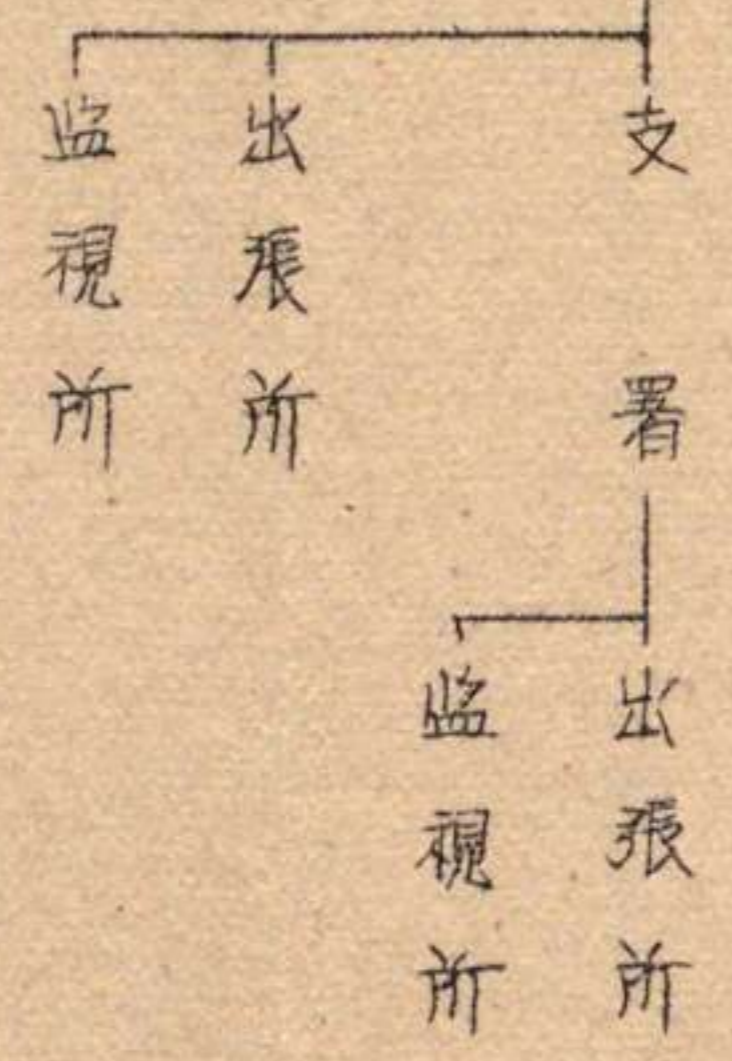 支署
出張所
監視所
出張所
監視所